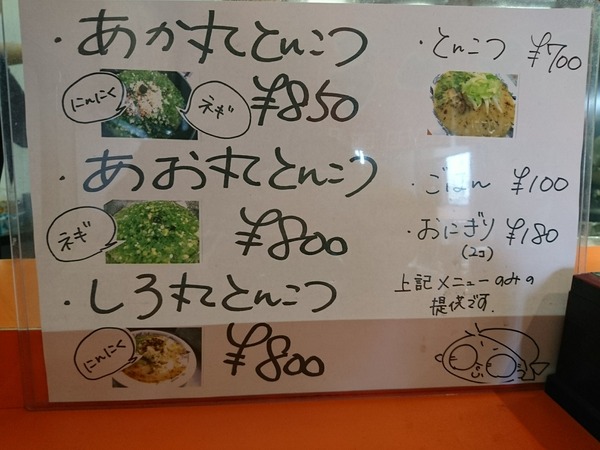 ・あか丸とんこつ
にんにく
ネギ
¥850
・あお丸とんこつ
ネギ
¥800
・しろ丸とんこつ
にんにく
¥800
・とんこつ ¥700
・ごはん ¥100
・おにぎり ¥180
(2コ)
上記メニューのみの
提供です.